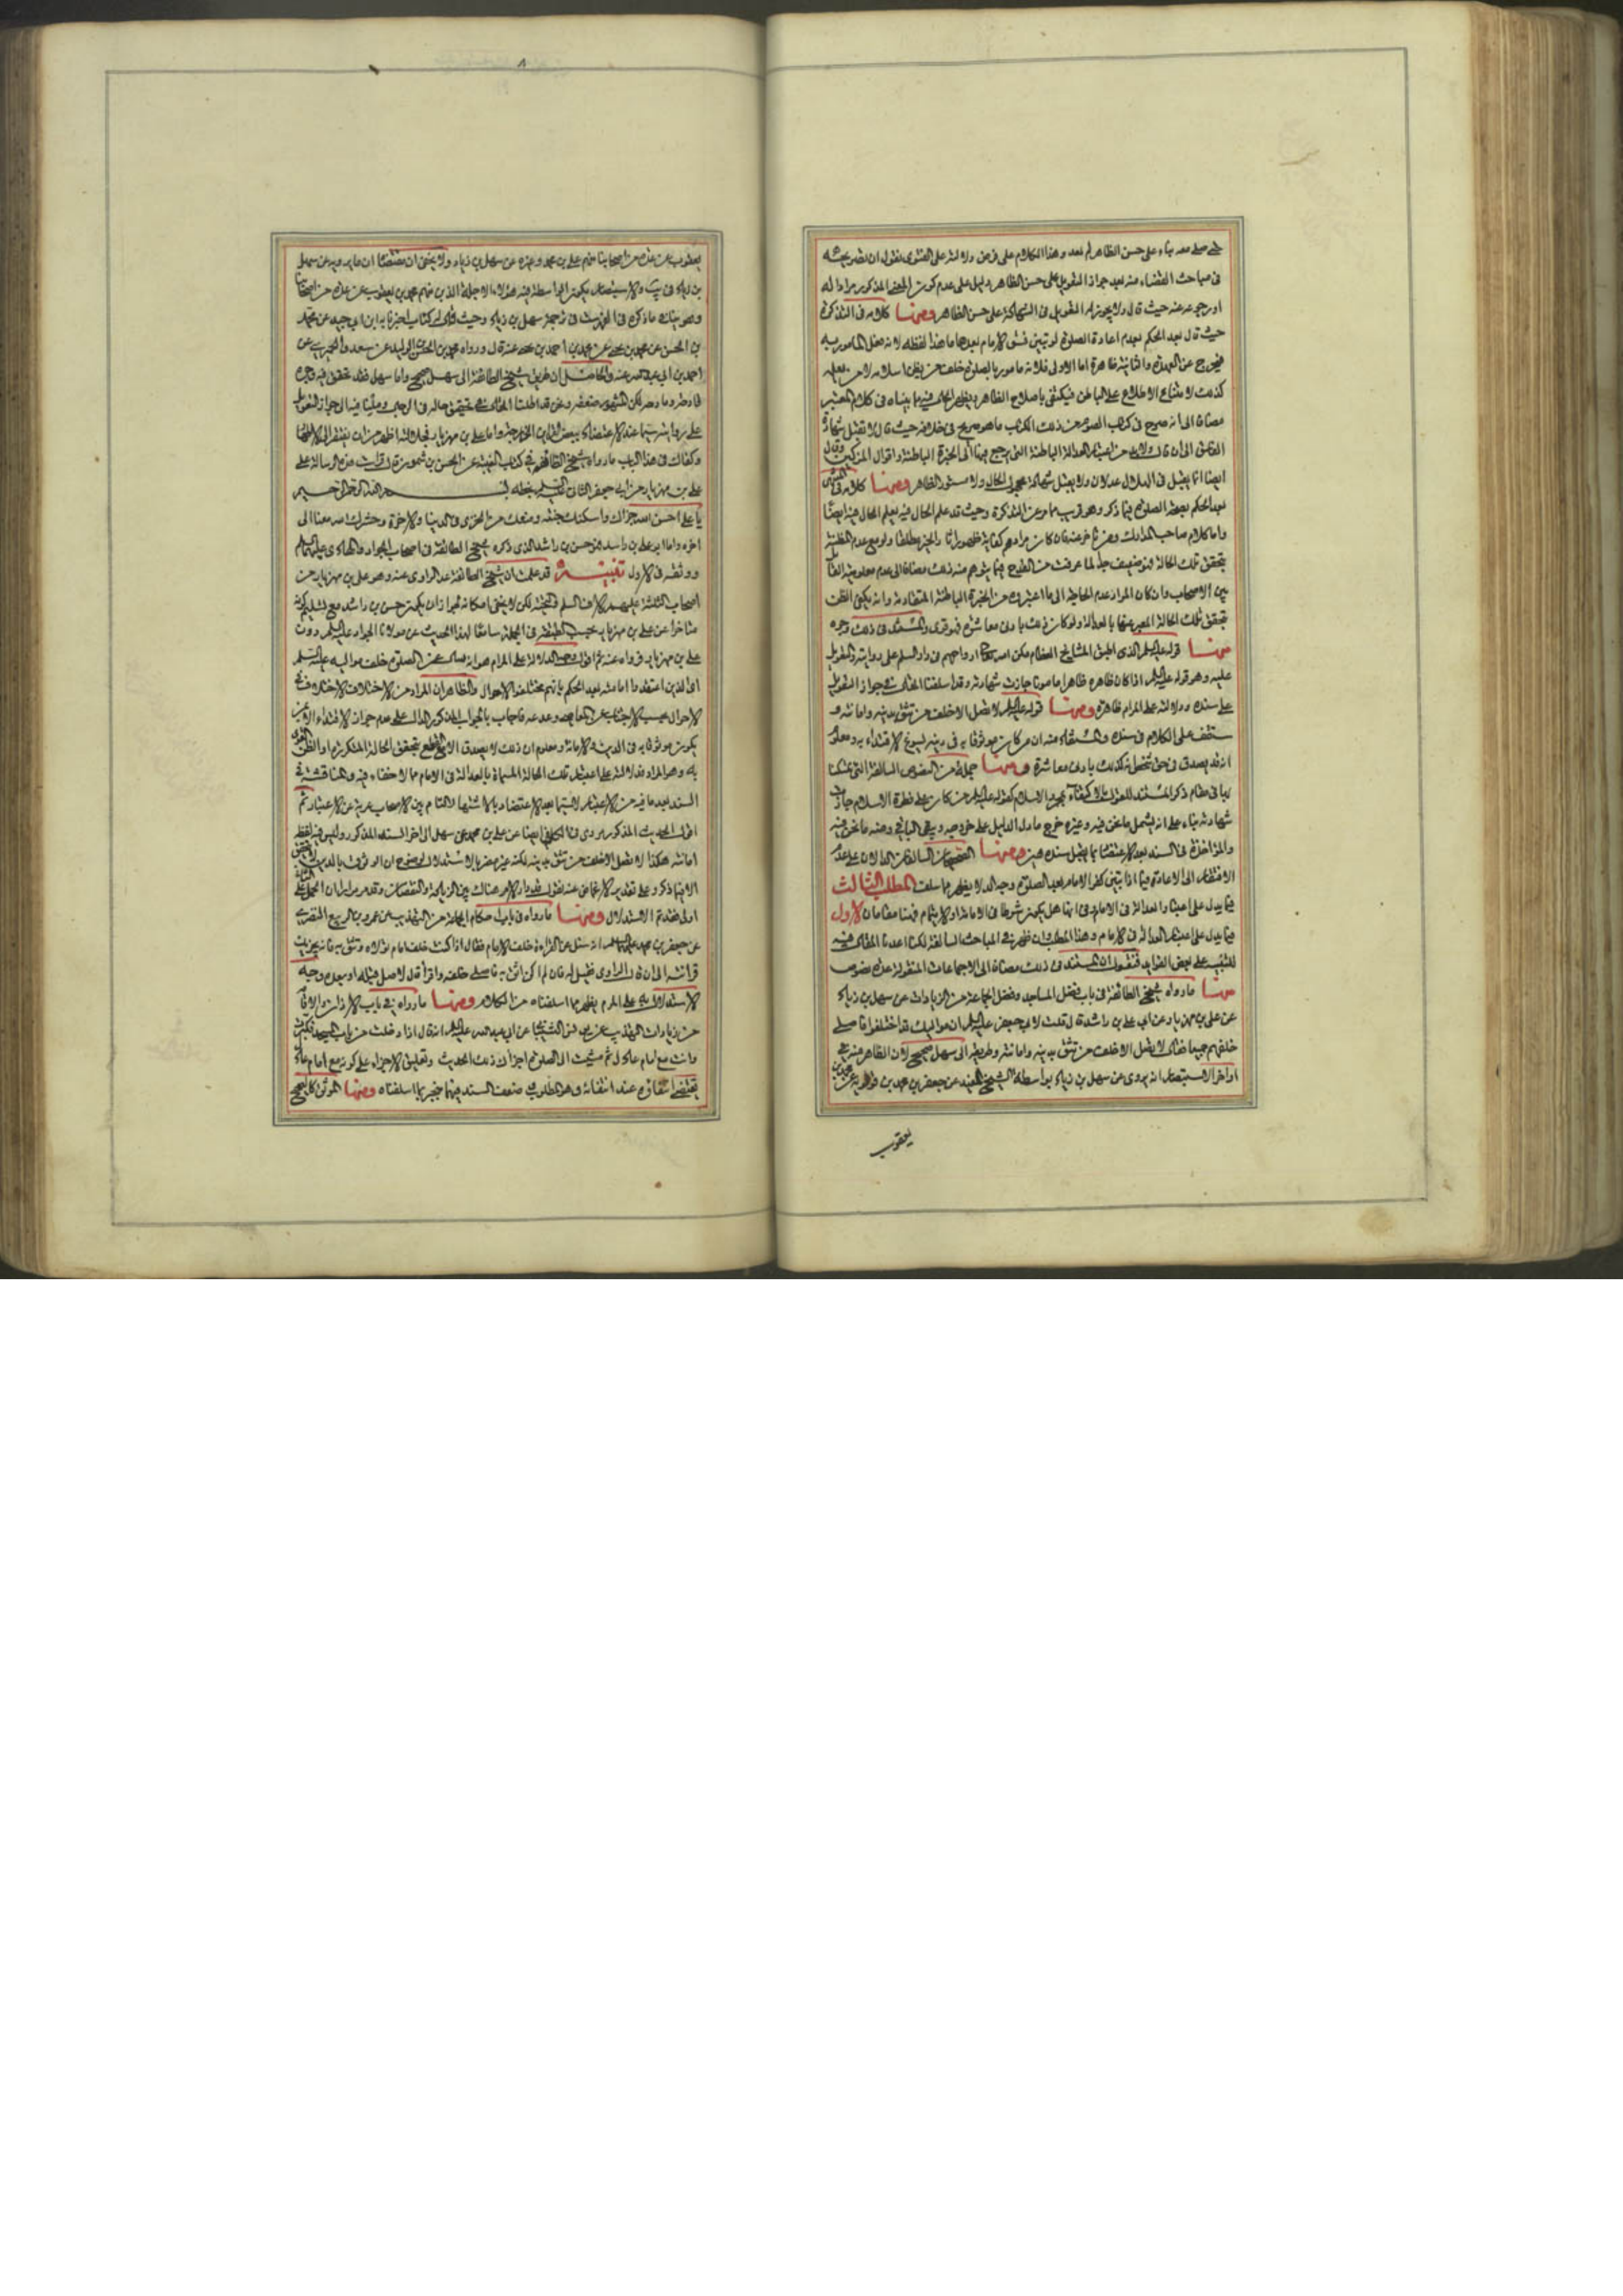 على حسن الظاهر لم بعد وهذا الكلام على فرض دلالته على الفتوى نقول ان
فى مباحث القضاء منه بعدم جواز التعويل على حسن الظاهر دليل على عدم كون المذكور مرادا له
او رجوعه عنه حيث قال ولا يجوز له التعويل فى الشهادة على حسن الظاهر ومنها كلامه فى التذكرة
حيث قال بعد الحكم بعدم اعادة الصلوة لو تبين فسق الامام بعدها ما هذا لفظه لانه فعل المامور به
فيخرج عن العهدة والثانية ظاهرة اما الاولى فلانه مامور بالصلوة خلف من يظن اسلامه لا من يعلمه
كذلك لامتناع الاطلاع على الباطن فيكتفى باصلاح الظاهر
مضافا الى انه صرح فى كتاب الصوم من ذلك الكتاب ما هو صريح فى خلافه حيث قال لا تقبل شهادة
الفاسق الى ان قال ولابد من اعتبار العدالة الباطنة التى يرجع فيها الى الخبرة الباطنة واقوال المزكين وقال
ايضا انما يقبل فى الهلال عدلان ولا يقبل شهادة مجهول الحال ولا مستور الظاهر ومنها كلامه فى المنتهى
بعد الحكم بصحة الصلوة فيما ذكر وهو قريب مما مر عن التذكرة وحيث قد علم الحال فيه يعلم الحال فيه ايضا
واما كلام صاحب المدارك
بتحقق تلك الحالة فهو ضعيف جدا لما عرفت
بين الاصحاب وان كان المراد عدم الحاجة الى ما اعتبروه من الخبرة الباطنة المتقادمة وانه يكفى الظن
بتحقق تلك الحالة المعبر عنها بالعدالة ولو كان ذلك بادنى معاشرة فهو قوى والمستند فى ذلك وجوه
منها قوله عليه السلم الذى اطبق المشايخ العظام مكن الله ارواحهم فى دار السلم على روايته والتعويل
عليه وهو قوله عليه السلم اذا كان ظاهره ظاهرا مامونا جازت شهادته وقد اسلفنا المقال فى جواز التعويل
على سنده ودلالته على المرام ظاهرة ومنها قوله عليه السلم لا تصل الا خلف من تثق بدينه وامانته و
ستقف على الكلام فى سنده والمستفاد منه ان من كان موثوقا به فى دينه يسوغ الاقتداء به ومعلوم
انه قد يصدق فى حق شخص ذلك بادنى معاشرة ومنها جملة من النصوص السالفة التى تمسكنا
بها فى مقام ذكر المستند للقول بالاكتفاء بمجرد الاسلام كقوله عليه السلم من كان على فطرة الاسلام جازت
شهادته بناء على انه يشمل ما نحن فيه وغيره خرج ما دل الدليل على خروجه وبقى الباقى ومنه ما نحن فيه
والمؤاخذة فى السند بعد الاعتضاد بما يقبل سنده هين ومنها الصحيحان السالفان الدالان على عدم
الافتقار الى الاعادة فيما اذا تبين كفر الامام بعد الصلوة وجه الدلالة يظهر مما سلف المطلب الثالث
فيما يدل على اعتبار العدالة فى الامام وفى انها هل يكون شرطا فى الامامة او الايتمام فهنا مقامان الاول
فيما يدل على اعتبار العدالة فى الامام وهذا المطلب وان ظهر فى المباحث السالفة لكنا اعدنا المقال فيه
للتنبيه على بعض الفوايد فنقول ان المستند فى ذلك مضافا الى الاجماعات المنقولة عدة نصوص
منها ما رواه شيخ الطائفة فى باب فضل المساجد وفضل الجماعة من الزيادات عن سهل بن زياد
عن على بن مهزيار عن ابى على بن راشد قال قلت لابى جعفر عليه السلم ان مواليك قد اختلفوا فاصلى
خلفهم جميعا فقال لا تصل الا خلف من تثق بدينه وامانته وطريقه الى سهل صحيح لان الظاهر منه فى
اواخر الاستبصار انه يروى عن سهل بن زياد بواسطة الشيخ المفيد عن جعفر بن محمد بن قولويه عن محمد بن
يعقوب
٨
يعقوب عن عدة من اصحابنا منهم على بن محمد وغيره عن سهل بن زياد ولا يخفى ان مقتضاه ان ما يرويه عن سهل
بن زياد فى يب والاستبصار يكون الواسطة فيه هؤلاء الاجلة الذين منهم محمد بن يعقوب عن عدة من اصحابنا
ونحو ذلك ما ذكره فى الفهرست فى ترجمة سهل بن زياد وحيث قال له كتاب اخبرنا به ابن ابى جيد عن محمد
بن الحسن عن محمد بن يحيى عن محمد بن احمد بن يحيى عنه قال ورواه محمد بن الحسن بن الوليد عن سعد والحميرى عن
احمد بن ابى عبد الله عنه والحاصل ان طريق شيخ الطائفة الى سهل صحيح واما سهل فقد تحقق فيه وجوه
قادحة وما دحة لكن المشهور ضعفه ونحن قد اطلنا المقال فى تحقيق حاله فى الرجال وملنا فيه الى جواز التعويل
على روايته سيما عند الاعتضاد ببعض القراين الخارجية واما على بن مهزيار فجلالته اظهر من ان يفتقر الى الايضاح
وكفاك فى هذا الباب ما رواه شيخ الطائفة فى كتاب الغيبة عن الحسن بن شمون قال قرات هذه الرسالة على
على بن مهزيار من ابى جعفر الثانى عليه السلم بخطه بسم الله الرحمن الرحيم
يا على احسن الله جزاك واسكنك جنته ومنعك من الخزى فى الدنيا والاخرة وحشرك الله معنا الى
اخره واما ابو على بن راشد فهو حسن بن راشد الذى ذكره شيخ الطائفة فى اصحاب الجواد والهادى عليهما السلم
ووثقه فى الاول تنبيه قد علمت ان شيخ الطائفة عد الراوى عنه وهو على بن مهزيار من
اصحاب الثلثة عليهم الاف السلم والتحية لكن لا يخفى امكانه لجواز ان يكون حسن بن راشد مع تسليم كونه
متاخرا عن على بن مهزيار بحسب الطبقة فى الجملة سامعا لهذا الحديث عن مولانا الجواد عليه السلم دون
على بن مهزيار فرواه عنه ثم اقول وجه الدلالة على المرام هو انه سال عن الصلوة خلف مواليه عليه السلم
اى الذين اعتقدوا امامته بعد الحكم بانهم مختلفوا الاحوال والظاهر ان المراد من الاختلاف الاختلاف فى
الاحوال بحسب الاجتناب عن المعاصى وعدمه فاجاب بالجواب المذكور الدال على عدم جواز الاقتداء الا بمن
يكون موثوقا به فى الدين والامانة ومعلوم ان ذلك لا يصدق الا مع القطع بتحقق الحالة المذكورة او الظن القوى
به وهو المراد فدلالته على اعتبار تلك الحالة المسماة بالعدالة فى الامام مما لا خفاء فيه والمناقشة فى
السند بعد ما فيه من الاعتبار لاسيما بعد الاعتضاد بالاشتهار التام بين الاصحاب عرية عن الاعتبار ثم
اقول الحديث المذكور مروى فى الكافى ايضا عن على بن محمد عن سهل الى اخر السند المذكور وليس فيه لفظ
امانته هكذا لا تصل الا خلف من تثق بدينه لكنه غير مضر بالاستدلال لوضوح ان الوثوق بالدين لا يتحقق
الا بما ذكر وعلى تقدير الاغماض عنه نقول يدور الامر هناك بين الزيادة والنقصان وقد مر مرارا ان الحمل على الثانى
اولى فقد تم الاستدلال ومنها ما رواه فى باب احكام الجماعة من التهذيب عن عمرو بن الربيع البصرى
عن جعفر بن محمد عليهما السلم انه سئل عن القراءة خلف الامام فقال اذا كنت خلف امام تولاه وتثق به فانه يجزيك
قرائته الى ان قال الراوى فقيل له فان لم اكن اثق به فاصلى خلفه واقرأ قال لا صل قبله او بعده وجه
الاستدلال به على المرام يظهر مما اسلفناه من الكلام ومنها ما رواه فى باب الاذان والاقامة
من زيادات التهذيب عن عن ابى عبد الله عليه السلم انه قال اذا دخلت من باب المسجد فكبرت
وانت مع امام عادل ثم مشيت الى الصلوة اجزأك ذلك الحديث وتعليق الاجزاء على كونه مع امام عادل
يقتضى انتفاؤه عند انتفائه وهو المطلوب وضعف السند فيهما منجبر بما اسلفناه ومنها الموثق كالصحيح